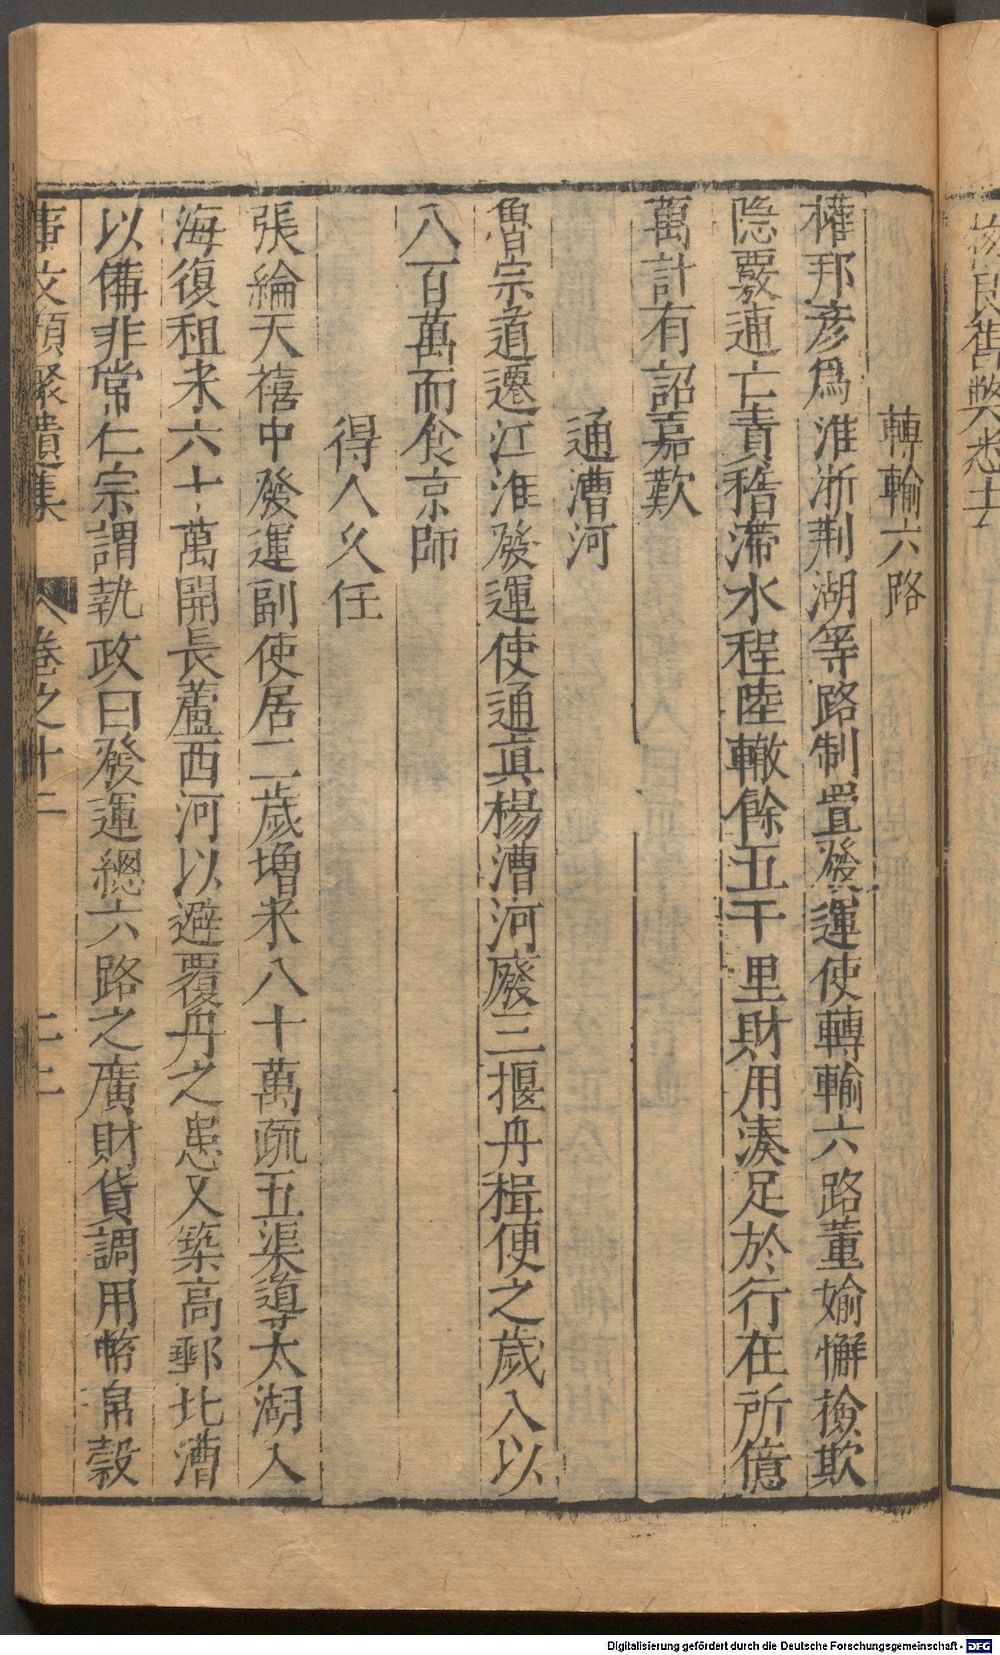 轉輸六路
權邦彦爲淮浙荆湖等路制置發運使轉輸六路董媮懈檢欺
隐覈逋亡責稽滯水程陸轍餘五千里財用湊足於行在所億
萬計有詔嘉歎
通漕河
魯宗道遷江淮發運使通眞楊漕河廢三堰舟楫便之歲入以
八百萬而食京師
得人久任
張綸天禧中發運副使居二歲增米八十萬疏五渠導太湖入
海復租米六十萬開長蘆西河以避覆舟之患又築高郵北漕
以備非常仁宗謂執政曰發運總六路之廣財貨調用幣帛穀
事文類聚遺集 卷之十二 二十二
Digitalisierung gefördert durch die Deutsche Forschungsgemeinschaft - DFG